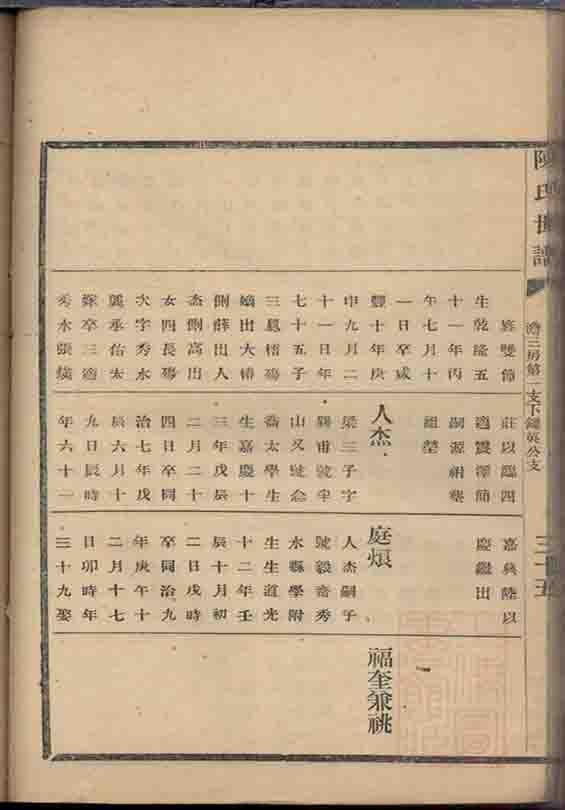 陳氏世譜
濟三房第一支下鍾英公支
三十五
葬雙節
生乾隆五
十一年丙
午七月十
一日卒咸
豐十年庚
申九月二
十一日年
七十五子
三
嫡出大椿
側薛出人
杰側高出
女四長殤
次字秀水
龔承佑太
嫁卒三適
秀水張
莊以臨四
適震澤簡
嗣源祔葬
祖塋
人杰
梁三子字
巽甫號半
山又號念
喬太學生
生嘉慶十
三年戊辰
二月二十
四日卒同
治七年戊
辰六月十
九日辰時
年六十一
嘉興陸以
慶繼出
庭烺
人杰嗣子
號毅齋秀
水縣學附
生生道光
十二年壬
辰十月初
二日戌時
卒同治九
年庚午十
二月十七
日卯時年
三十九娶
福奎兼祧